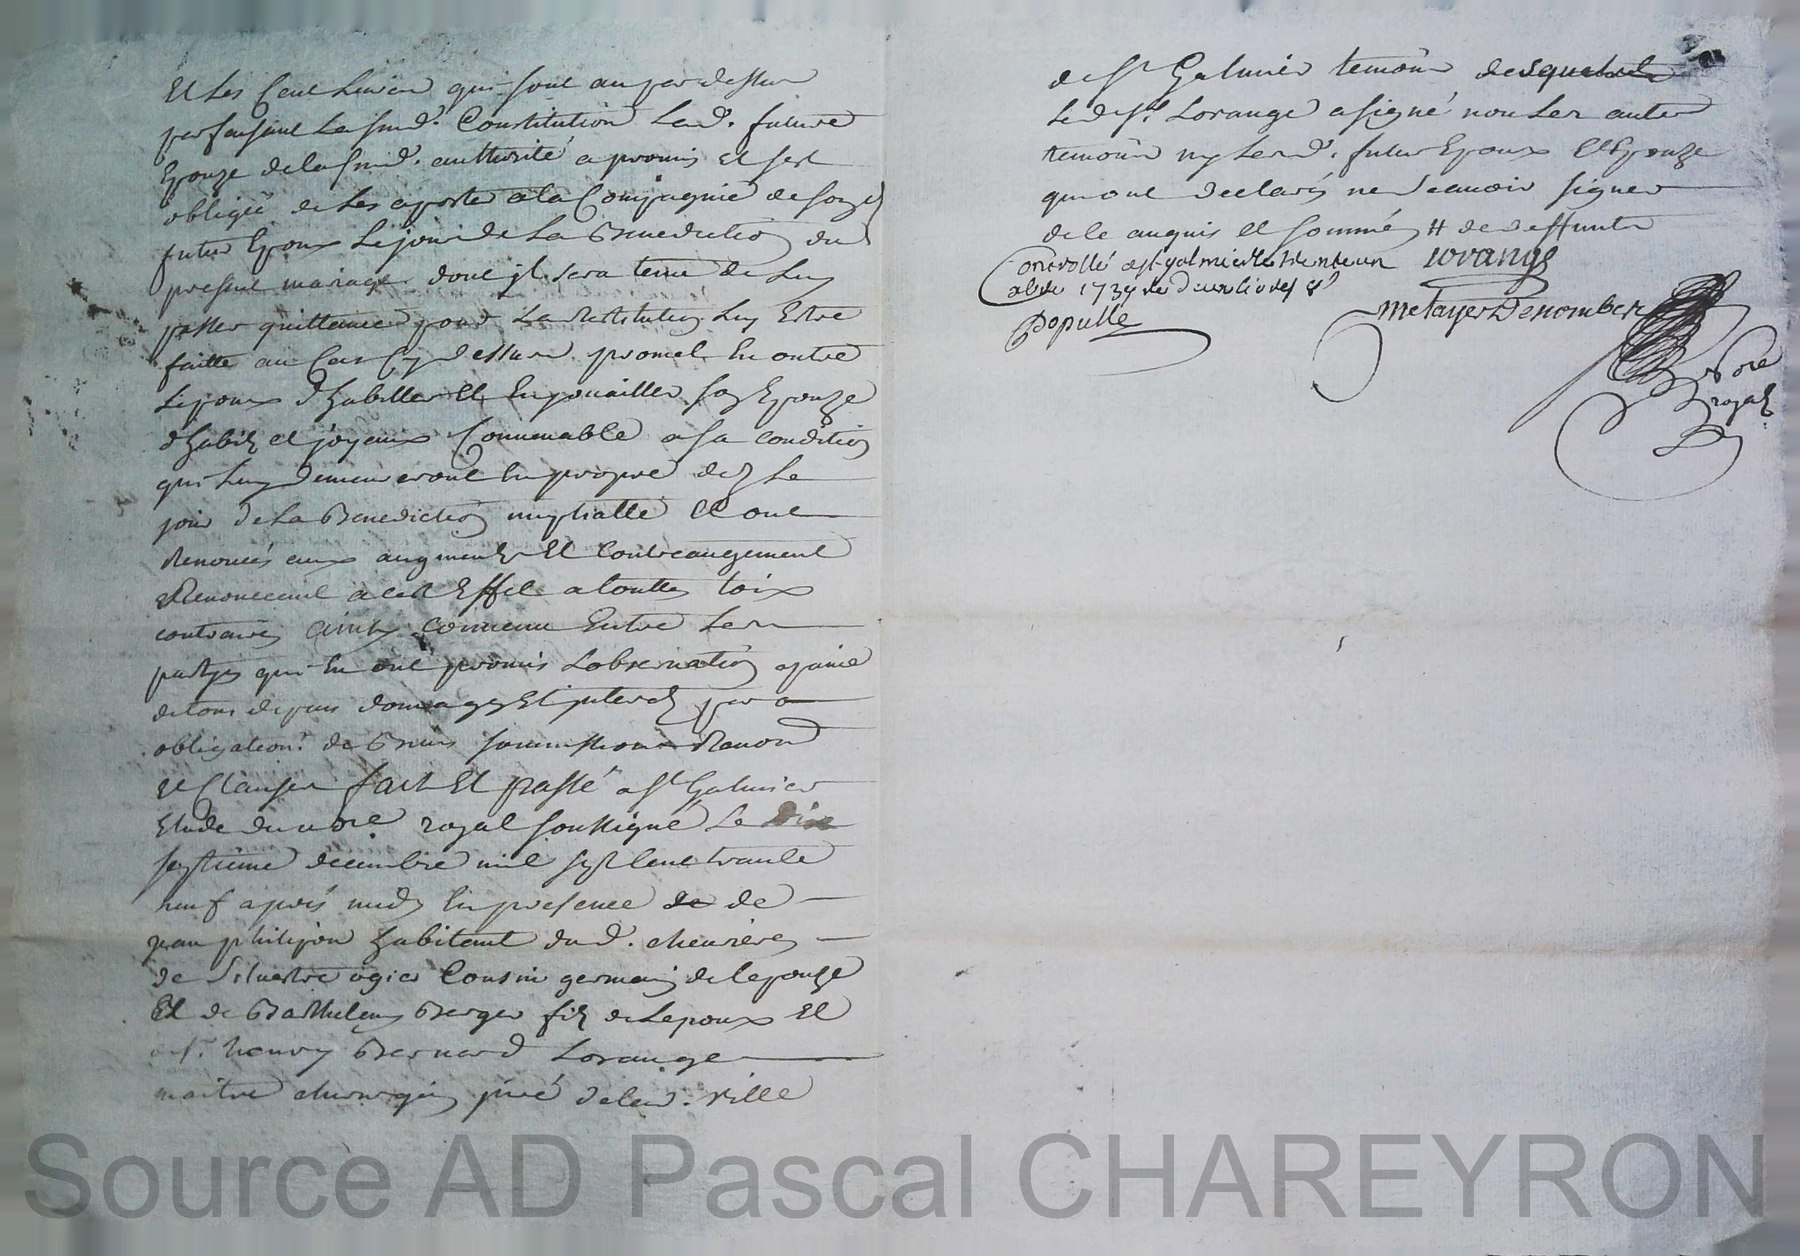 Et Les Cent Livres qui sont au par dessus
parfaisant La susd. Constitution Lad. future
Epouze de la susd. authorité a promis Et sest
obligée de Les aporter a la Compagnie de sond
futur Epoux Le jour de La Benediction du
present mariage dont jl sera tenu de Luy
passer quittance pour La restitution Luy Estre
faitte au Cas Cy dessus promet En outre
Lepoux d'habiller Et Enjouailler son Epouze
d'habits et joyaux Convenable a sa condition
qui Luy demeureront En propre dez Le
jour de La Benediction nuptialle Et ont
Renoncés aux augment Et Contreaugement
Renonceant a cest Effet a touttes loix
contraires ainsy convenu Entre Les
partyes qui En ont promis Lobservation a paine
de tous depens domages Et jnterests par
obligation de Biens soumissions Renon
et Clauses fait Et passé a St Galmier
Etude du nore royal soussigné Le dix
septieme decembre mil sept Cent trante
neuf après midy En presence de
jean philipon habitant dud. chevrieres
de Silvestre ogier Cousin germain de lepouze
Et de Barthelemy Berger fils de Lepoux Et
de sr. henry Bernard Lorange
maitre chirurgien juré de lad. ville
de St Galmier temoins
Led. sr. Lorange a signé non Les autes
temoins ny Lesd. futur Epoux Et Epouze
qui ont declarés ne Scavoir signer
de ce anquis et sommés # de deffunte
Controllé a St galmier le trente un
xbre 1739 Re deux livres 8s
Populle
Lorange
Metayer Denombre
nore
royal
Source AD Pascal CHAREYRON